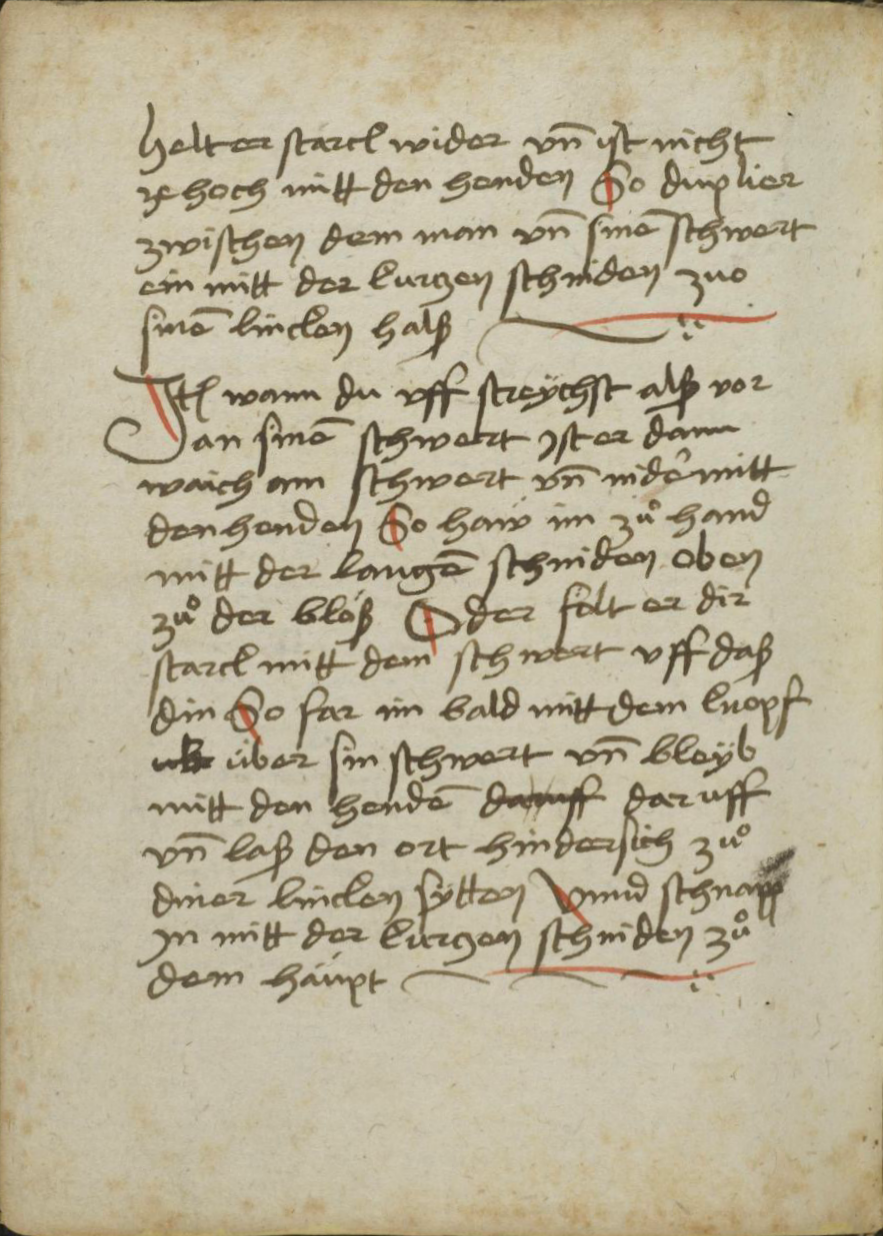 helt er starck wider vn̄ ist nicht
ze hoch mitt den henden So duplier
zwischen dem man vn̄ sinē schwert
ein mitt der kurczen schniden zuo
sinē lincken halß
Itē wann du vff streychst alß vor
an sinē schwert Ist er dann
waich am schwert vn̄ nider mitt
den henden So haw im zů hand
mitt der langē schniden oben
zů der blöß Oder felt er dir
starck mitt dem schwert vff daß
din So far im bald mitt dem knopf
über sin schwert vn̄ bleyb
mitt den hendē daruff daruff
vn̄ laß den ort hindersich zů
diner lincken sytten Vnnd schnapp
In mitt der kurczen schniden zů
dem häupt